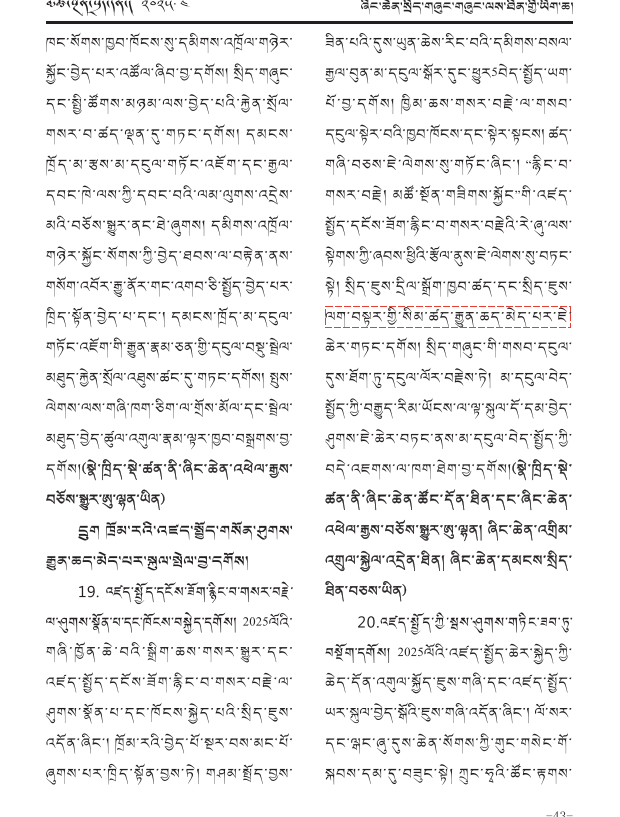 ༢༠༢༥.༤
ཞིང་ཆེན་སྲིད་གཞུང་གཞུང་ལས་ཐིན་གྱི་ཡིག་ཆ།
ཁང་སོགས་ཁྱབ་ཁོངས་སུ་དམིགས་འཁྲོལ་གཉེར་
སྐྱོང་བྱེད་པར་འཚོལ་ཞིབ་བྱ་དགོས། སྲིད་གཞུང་
དང་སྤྱི་ཚོགས་མཉམ་ལས་བྱེད་པའི་རྐྱེན་སྲོལ་
གསར་བ་ཚད་ལྡན་དུ་གཏང་དགོས། དམངས་
ཁྲོད་མ་རྩས་མ་དངུལ་གཏོང་འཇོག་དང་རྒྱལ་
དབང་ཁེ་ལས་ཀྱི་དབང་བའི་ལམ་ལུགས་འདྲེས་
མའི་བཅོས་སྒྱུར་ནང་ཐེ་ཞུགས། དམིགས་འཁྲོལ་
གཉེར་སྐྱོང་སོགས་ཀྱི་བྱེད་ཐབས་ལ་བརྟེན་ནས་
གསོག་འབོར་རྒྱུ་ནོར་གང་འགབ་ཅི་སྤྱོད་བྱེད་པར་
ཁྲིད་སྟོན་བྱེད་པ་དང་། དམངས་ཁྲོད་མ་དངུལ་
གཏོང་འཇོག་གི་རྒྱུན་རྣམ་ཅན་གྱི་དངུལ་བསྡུ་སྤྲེལ་
མཐུད་རྐྱེན་སྲོལ་འཐུས་ཚང་དུ་གཏང་དགོས། སྤུས་
ལེགས་ལས་གཞི་ཁག་ཅིག་ལ་གྲོས་མོལ་དང་སྦྲེལ་
མཐུད་བྱེད་ཚུལ་འགུལ་རྣམ་ལྟར་ཁྱབ་བསྒྲགས་བྱ་
དགོས།(སྣེ་ཁྲིད་སྡེ་ཚན་ནི་ཞིང་ཆེན་འཕེལ་རྒྱས་
བཅོས་སྒྱུར་ཨུ་ལྷན་ཡིན)
དྲུག ཁྲོམ་རའི་འཛད་སྤྱོད་གསོན་ཤུགས་
རྒྱུན་ཆད་མེད་པར་སྐུལ་སྤེལ་བྱ་དགོས།
19. འཛད་སྤྱོད་དངོས་ཟོག་རྙིང་བ་གསར་བརྗེ་
ལ་ཤུགས་སྣོན་པ་དང་ཁོངས་བསྐྱེད་དགོས། 2025ལོའི་
གཞི་ཁྱོན་ཆེ་བའི་སྒྲིག་ཆས་གསར་སྒྱུར་དང་
འཛད་སྤྱོད་དངོས་ཟོག་རྙིང་བ་གསར་བརྗེ་ལ་
ཤུགས་སྣོན་པ་དང་ཁོངས་སྐྱེད་པའི་སྲིད་ཇུས་
འདོན་ཞིང་། ཁྲོམ་རའི་བྱེད་པོ་སྔར་བས་མང་པོ་
ཞུགས་པར་ཁྲིད་སྟོན་བྱས་ཏེ། གཤམ་སྤྲོད་བྱས་
ཟིན་པའི་དུས་ཡུན་ཆེས་རིང་བའི་དམིགས་བསལ་
རྒྱལ་བུན་མ་དངུལ་སྒོར་དུང་ཕྱུར5བེད་སྤྱོད་ཡག་
པོ་བྱ་དགོས། ཁྱིམ་ཆས་གསར་བརྗེ་ལ་གསབ་
དངུལ་སྟེར་བའི་ཁྱབ་ཁོངས་དང་སྟེར་སྟངས། ཚད་
གཞི་བཅས་ཇེ་ལེགས་སུ་གཏོང་ཞིང་། “རྙིང་བ་
གསར་བརྗེ། མཚོ་སྔོན་གཟིགས་སྐྱོང་”གི་འཛད་
སྤྱོད་དངོས་ཟོག་རྙིང་བ་གསར་བརྗེའི་རེ་ཞུ་ལས་
སྟེགས་ཀྱི་ཞབས་ཕྱིའི་རྩོལ་ནུས་ཇེ་ལེགས་སུ་བཏང་
སྟེ། སྲིད་ཇུས་དྲིལ་སྒྲོག་ཁྱབ་ཚད་དང་སྲིད་ཇུས་
ལག་བསྟར་གྱི་སིམ་ཚད་རྒྱུན་ཆད་མེད་པར་ཇེ་
ཆེར་གཏང་དགོས། སྲིད་གཞུང་གི་གསབ་དངུལ་
དུས་ཐོག་ཏུ་དངུལ་ལོར་བརྗེས་ཏེ། མ་དངུལ་བེད་
སྤྱོད་ཀྱི་བརྒྱུད་རིམ་ཡོངས་ལ་ལྟ་སྐུལ་དོ་དམ་བྱེད་
ཤུགས་ཇེ་ཆེར་བཏང་ནས་མ་དངུལ་བེད་སྤྱོད་ཀྱི་
བདེ་འཇགས་ལ་ཁག་ཐེག་བྱ་དགོས།(སྣེ་ཁྲིད་སྡེ་
ཚན་ནི་ཞིང་ཆེན་ཚོང་དོན་ཐིན་དང་ཞིང་ཆེན་
འཕེལ་རྒྱས་བཅོས་སྒྱུར་ཨུ་ལྷན། ཞིང་ཆེན་འགྲིམ་
འགྲུལ་སྐྱེལ་འདྲེན་ཐིན། ཞིང་ཆེན་དམངས་སྲིད་
ཐིན་བཅས་ཡིན)
20.འཛད་སྤྱོད་ཀྱི་སྦས་ཤུགས་གཏིང་ཟབ་ཏུ་
བསྔོག་དགོས། 2025ལོའི་འཛད་སྤྱོད་ཆེར་སྐྱེད་ཀྱི་
ཆེད་དོན་འགུལ་སྐྱོད་ཇུས་གཞི་དང་འཛད་སྤྱོད་
ཡར་སྐུལ་བྱེད་སྒོའི་ཇུས་གཞི་འདོན་ཞིང་། ལོ་སར་
དང་ལྷང་ཞུ་དུས་ཆེན་སོགས་ཀྱི་གུང་གསེང་གོ་
སྐབས་དམ་དུ་བཟུང་སྟེ། ཀྲུང་ཧྭའི་ཚོང་རྟགས་
—43—